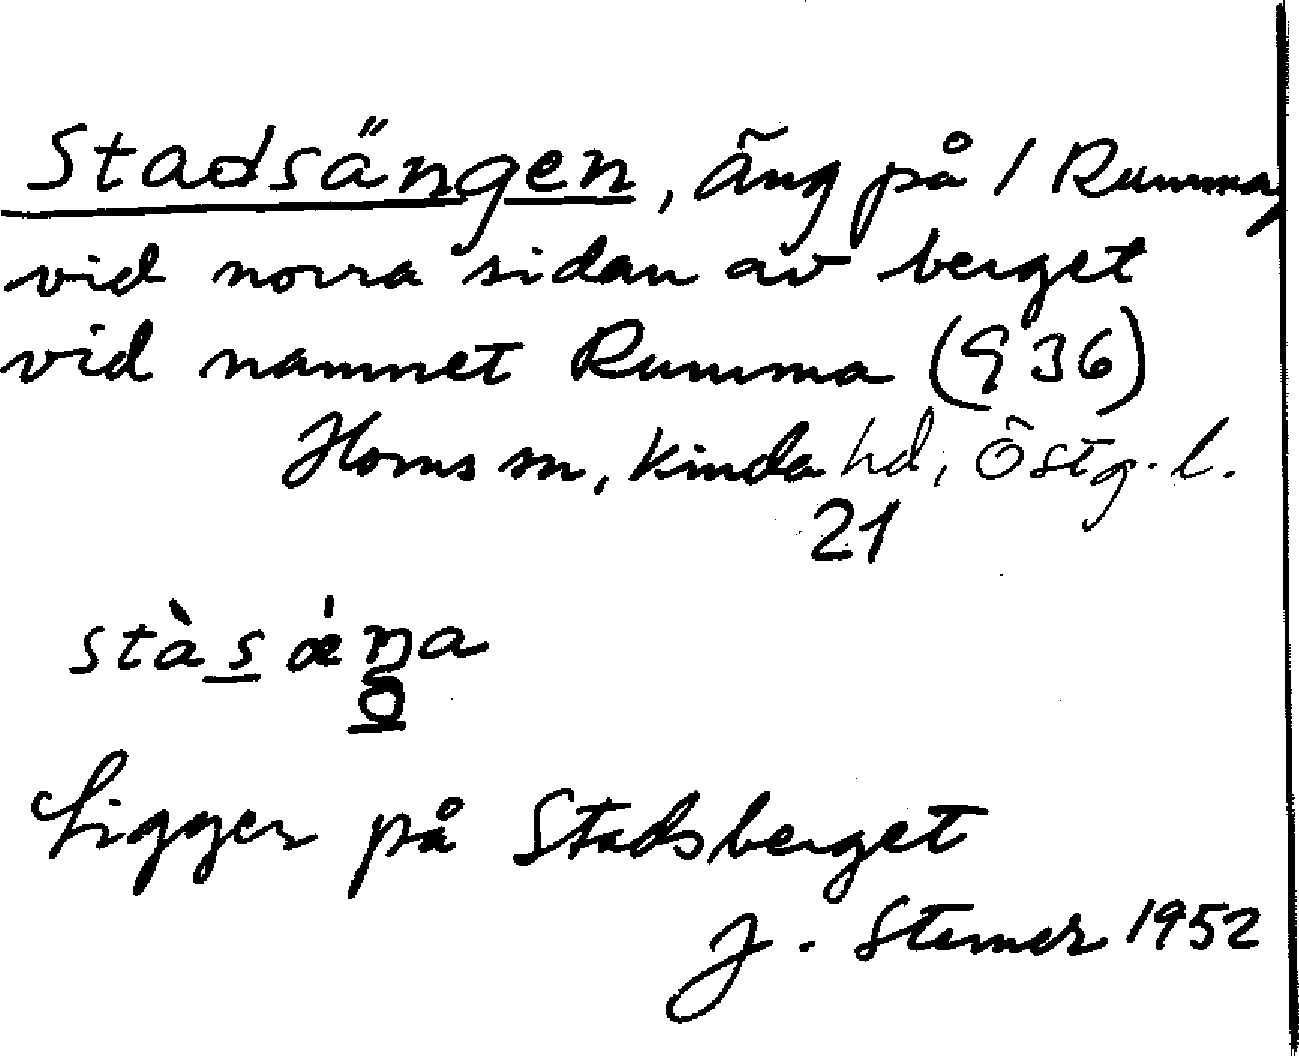 Stadsängen, äng på 1 Rumma,
vid norra sidan av berget
vid namnet Rumma (936)
Horns sn, Kinda hd, Östg. l.
21
stàsæ̀ŋa
Ligger på Stadsberget
J. Sterner 1952